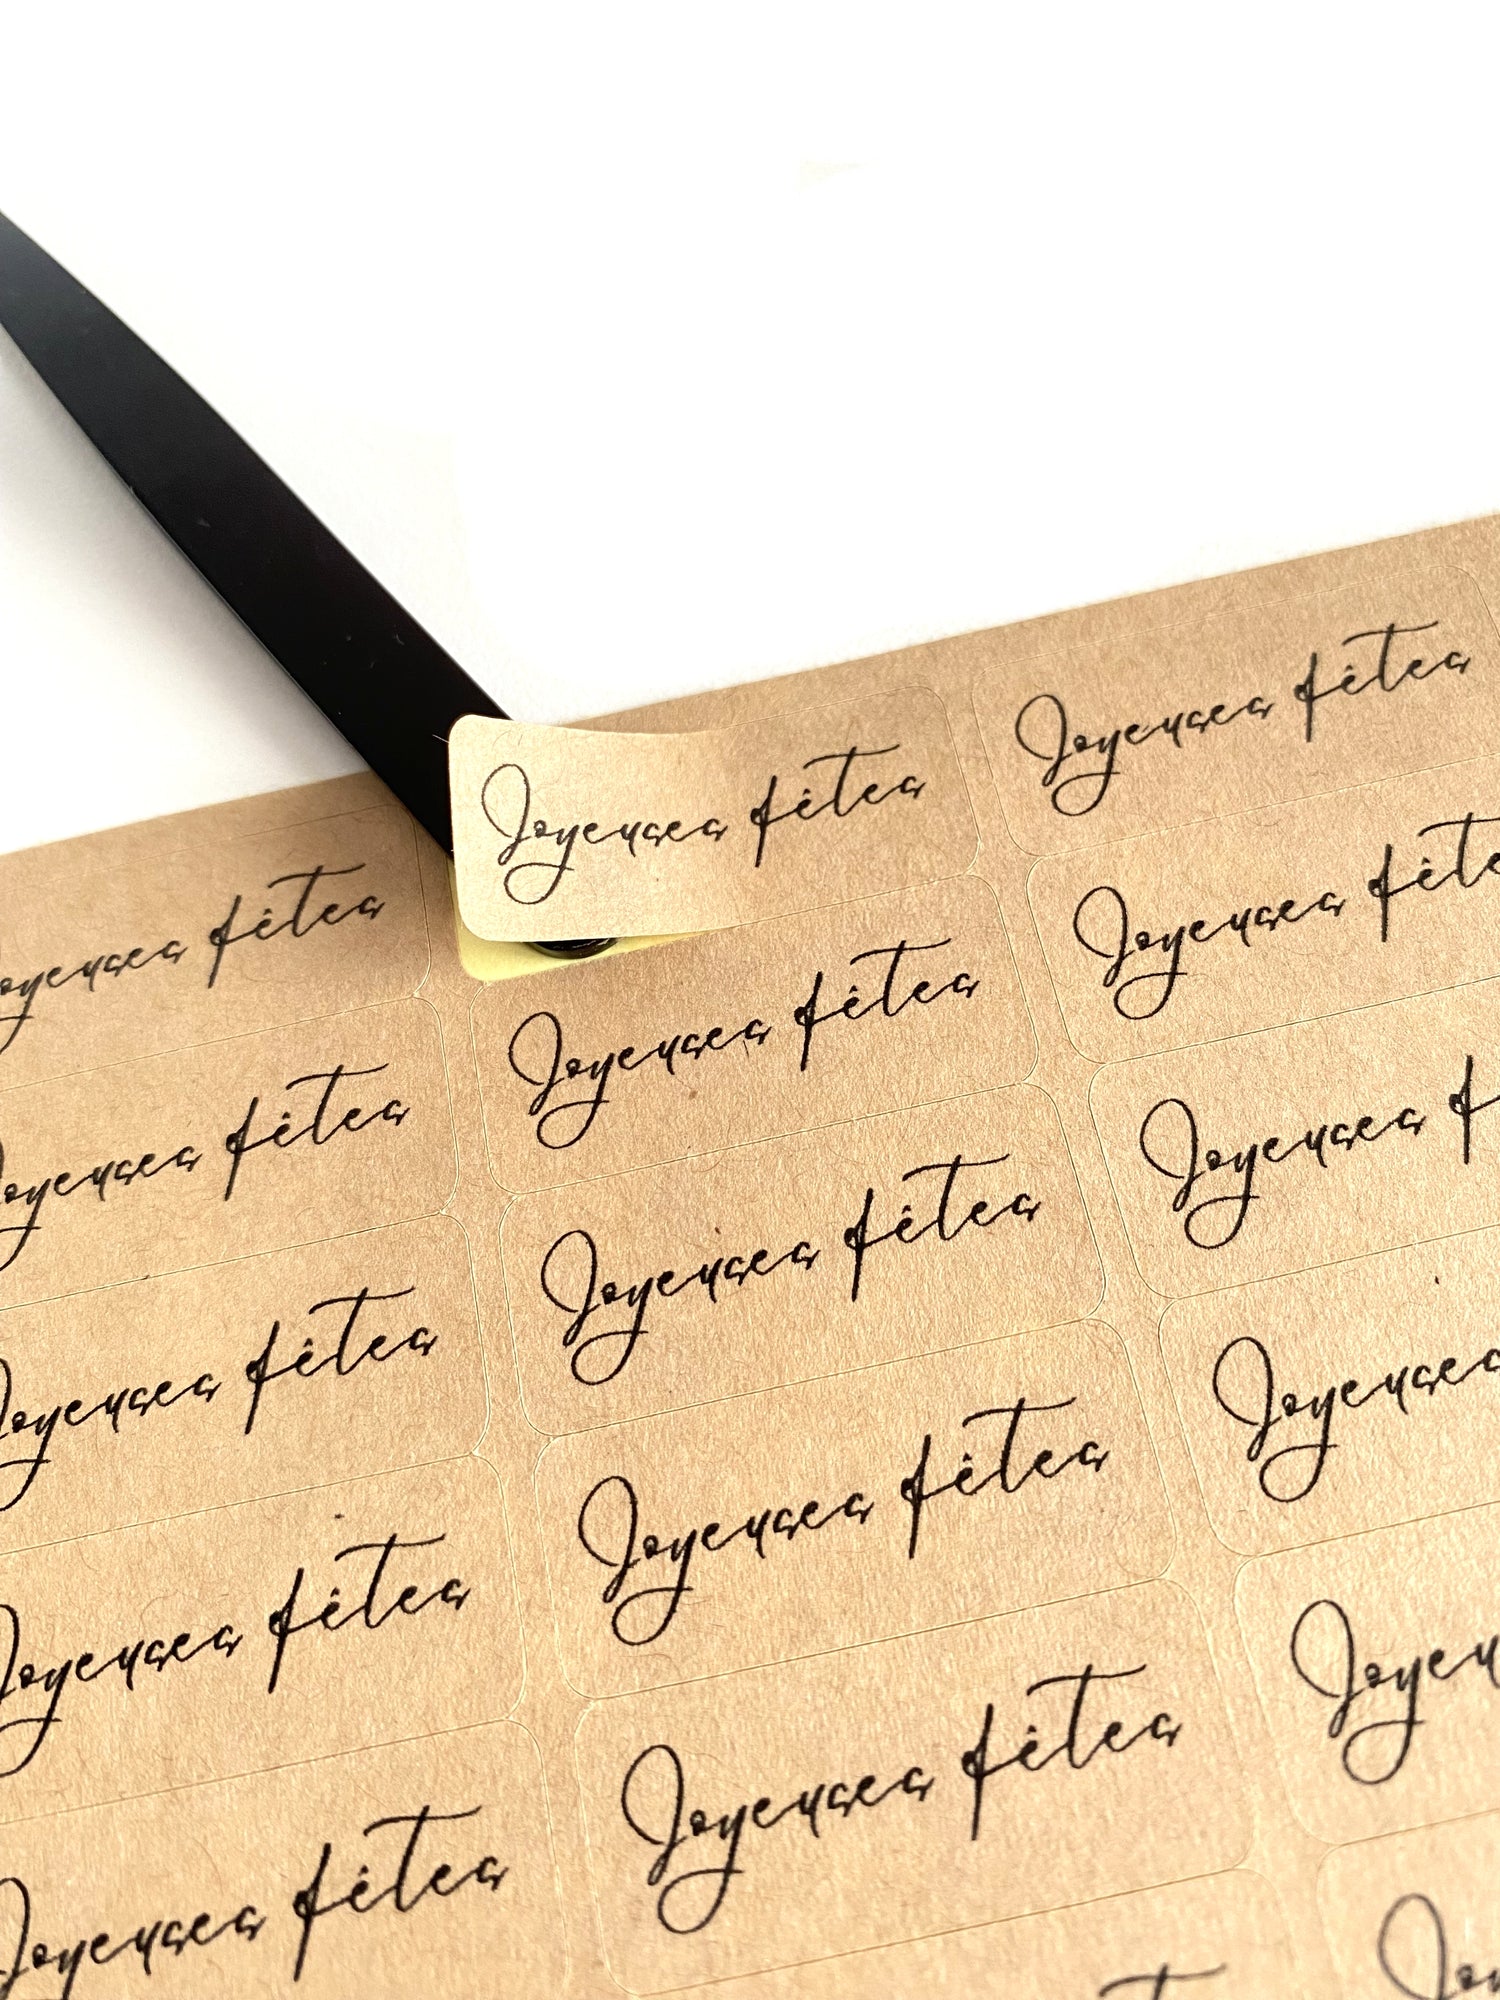 Joyeuses fêtes
Joyeuses fêtes
Joyeuses fêtes
Joyeuses fêtes
Joyeuses fêtes
Joyeuses fêtes
Joyeuses fêtes
Joyeuses fêtes
Joyeuses
Joyeuses fêtes
Joyeuses fêtes
Joyeuses
Joyeuses fêtes
Joyeuses fêtes